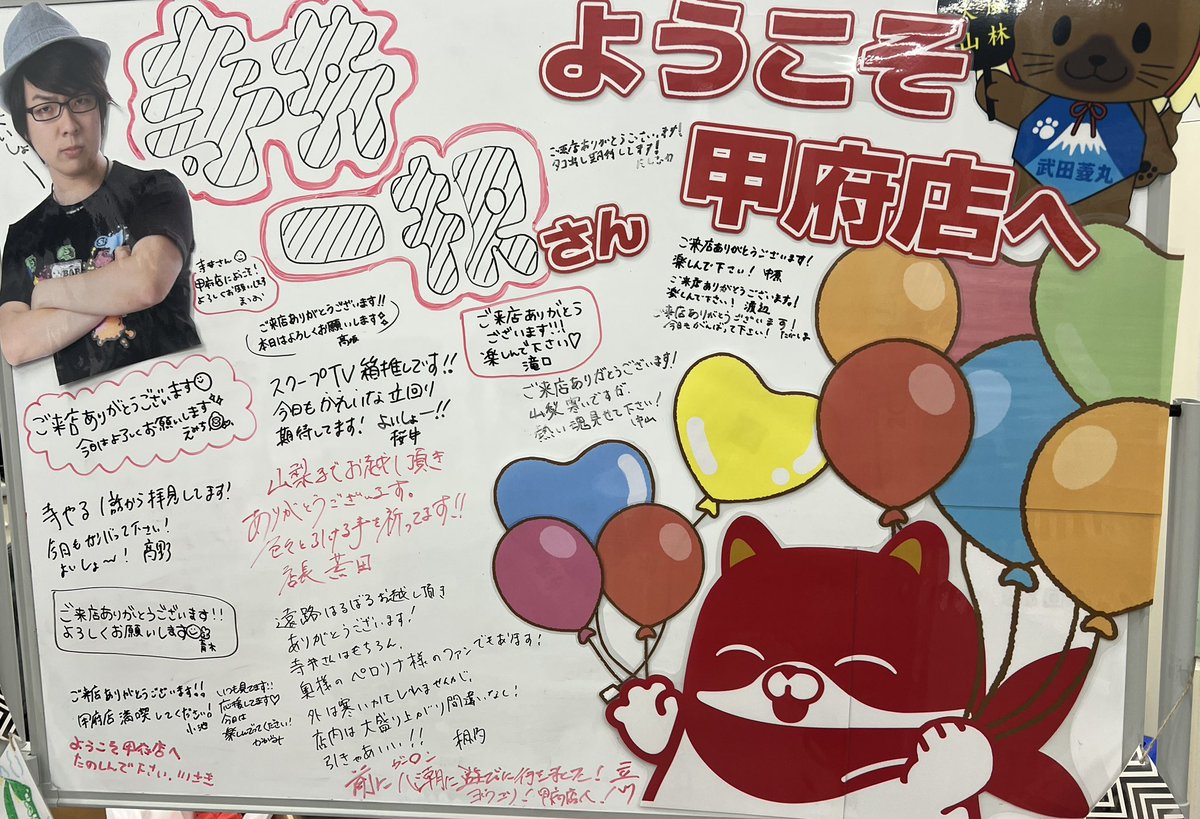 ようこそ
甲府店へ
寺井一択さん
風林火山
武田菱丸
ご来店ありがとうございます!
タコ出し期待してます!
にしなか
寺井さん
甲府店にようこそ!
よろしくお願いします
ご来店ありがとうございます!!
本日はよろしくお願いします
ご来店ありがとう
ございます!!!
楽しんで下さい♡
滝口
ご来店ありがとうございます!
楽しんで下さい!
ご来店ありがとうございます!
楽しんで下さい! 渡辺
ご来店ありがとうございます!
今日もがんばって下さい!
ご来店ありがとうございます!
山梨寒いですが、
熱い魂見せて下さい!
中山
ご来店ありがとうございます
今日はよろしくお願いします
スクープTV 箱推しです!!
今日もきれいな立回り
期待してます! よいしょー!!
桜井
山梨までお越し頂き
ありがとうございます。
色々と引ける事を祈ってます!!
店長
寺やる1話から拝見してます!
今日もがんばって下さい!
よいしょ〜! 高野
ご来店ありがとうございます!!
よろしくお願いします
青木
遠路はるばるお越し頂き
ありがとうございます!
寺井さんはもちろん、
奥様のペロリナ様のファンでもあります!
外は寒いかもしれませんが、
店内は大盛り上がり間違いなし!
引きゃあいい!!
ご来店ありがとうございます!!
甲府店満喫してください!
小池
いつも見てます!!
応援してます♡
今日は
楽しんでってください!
ようこそ甲府店へ
たのしんで下さい!!!
前に八潮に遊びに行きました!
ヨウコソ!甲府店へ!